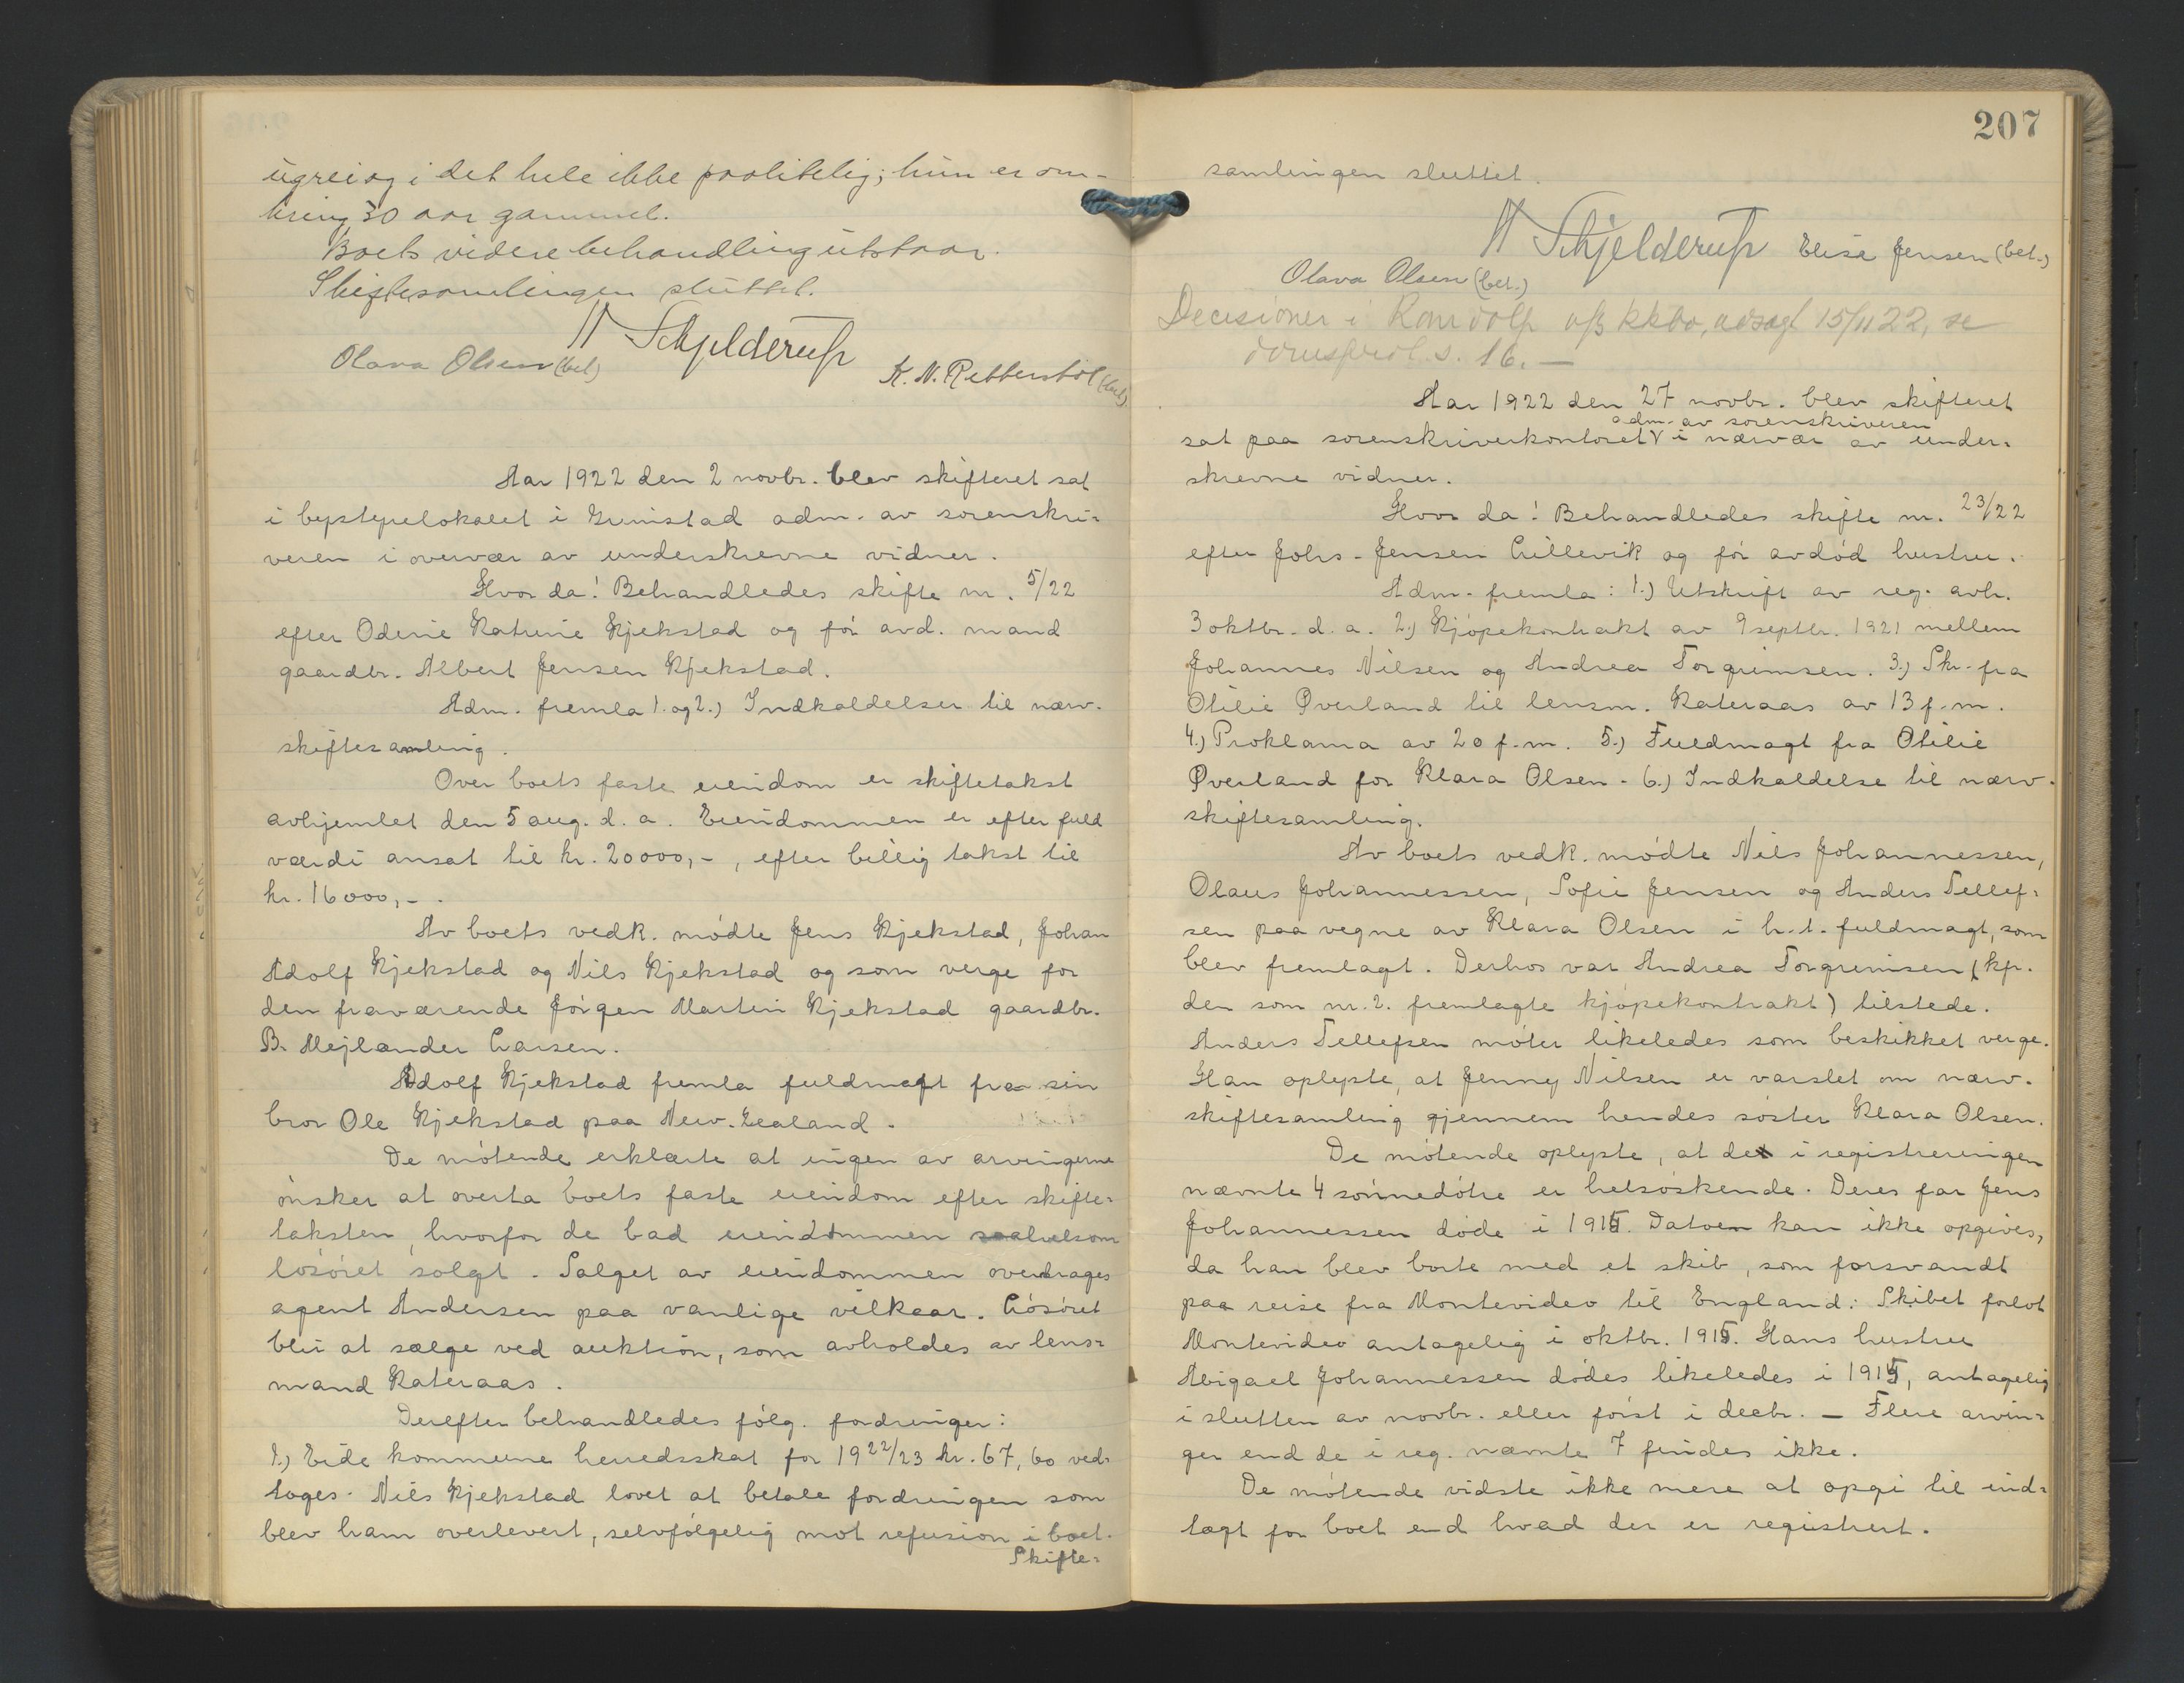 ugrei og i det hele ikke paalitelig; hun er om-
kring 30 aar gammel.
Boets videre behandling utstaar.
Skiftesamlingen sluttet.
Schjelderup
Olava Olsen (bet)
K. N. Retterstöl (bet)
Aar 1922 den 2 novbr. blev skifteret sat
i bystyrelokalet i Grimstad adm. av sorenskri-
veren i overvær av underskrevne vidner.
Hvor da! Behandledes skifte nr. 5/22
efter Odine Katrine Kjekstad og för avd. mand
gaardbr. Albert Jensen Kjekstad.
Adm. fremla 1. og 2.) Indkaldelser til nærv.
skiftesamling.
Over boets faste eiendom er skiftetakst
avhjemlet den 5 aug. d. a. Eiendommen er efter fuld
værdi ansat til kr. 20000,-, efter billig takst til
kr. 16000,-.
Av boets vedk. mödte Jens Kjekstad, Johan
Adolf Kjekstad og Nils Kjekstad og som verge for
den fraværende Jörgen Martin Kjekstad gaardbr.
B. Mejlænder Larsen.
Adolf Kjekstad fremla fuldmagt fra sin
bror Ole Kjekstad paa New-Zealand.
De mötende erklærte at ingen av arvingerne
önsker at overta boets faste eiendom efter skifte-
taksten, hvorfor de bad eiendommen saavelsom
lösöret solgt. Salget av eiendommen overdrages
agent Andersen paa vanlige vilkaar. Lösöret
blir at sælge ved auktion, som avholdes av lens-
mand Kateraas.
Derefter behandledes fölg. fordringer:
1.) Eide kommune herredsskat for 1922/23 kr. 67,60 ved-
toges. Nils Kjekstad lovet at betale fordringen som
blev ham overlevert, selvfölgelig mot refusion i boet.
Skifte-
207
samlingen sluttet.
Schjelderup Elise Jensen (bet.)
Olava Olsen (bet.)
Decisioner i Randolf kkbo, avsagt 15/11 22, se
s. 16.-
Aar 1922 den 27 novbr. blev skifteret
adm. av sorenskriveren
sat paa sorenskriverkontoret i nærvær av under-
skrevne vidner.
Hvor da! Behandledes skifte nr. 23/22
efter Johs. Jensen Lillevik og för avdöd hustru.
Adm. fremla: 1.) Utskrift av reg. avh.
3 oktbr. d. a. 2.) Kjöpekontrakt av 9 septbr. 1921 mellem
Johannes Nilsen og Andrea Torgrimsen. 3.) Skr. fra
Otilie Överland til lensm. Kateraas av 13 f. m.
4.) Proklama av 20 f. m. 5.) Fuldmagt fra Otilie
Överland for Klara Olsen. 6.) Indkaldelse til nærv.
skiftesamling.
Av boets vedk. mödte Nils Johannessen,
Olaus Johannessen, Sofie Jensen og Anders Tellef-
sen paa vegne av Klara Olsen i h. t. fuldmagt, som
blev fremlagt. Derhos var Andrea Torgrimsen (kfr.
den som nr. 2. fremlagte kjöpekontrakt) tilstede.
Anders Tellefsen möter likeledes som beskikket verge.
Han oplyste, at Jenny Nilsen er varslet om nærv.
skiftesamling gjennem hendes söster Klara Olsen.
De mötende oplyste, at de i registreringen
nævnte 4 sönnedötre er helsöskende. Deres far Jens
Johannessen döde i 1915. Datoen kan ikke opgives,
da han blev borte med et skib, som forsvandt
paa reise fra Montevideo til England: Skibet forlot
Montevideo antagelig i oktbr. 1915. Hans hustru
Abigael Johannessen dödes likeledes i 1915, antagelig
i slutten av novbr. eller först i decbr. - Flere arvin-
ger end de i reg. nævnte 7 findes ikke.
De mötende vidste ikke mere at opgi til ind-
tægt for boet end hvad der er registrert.